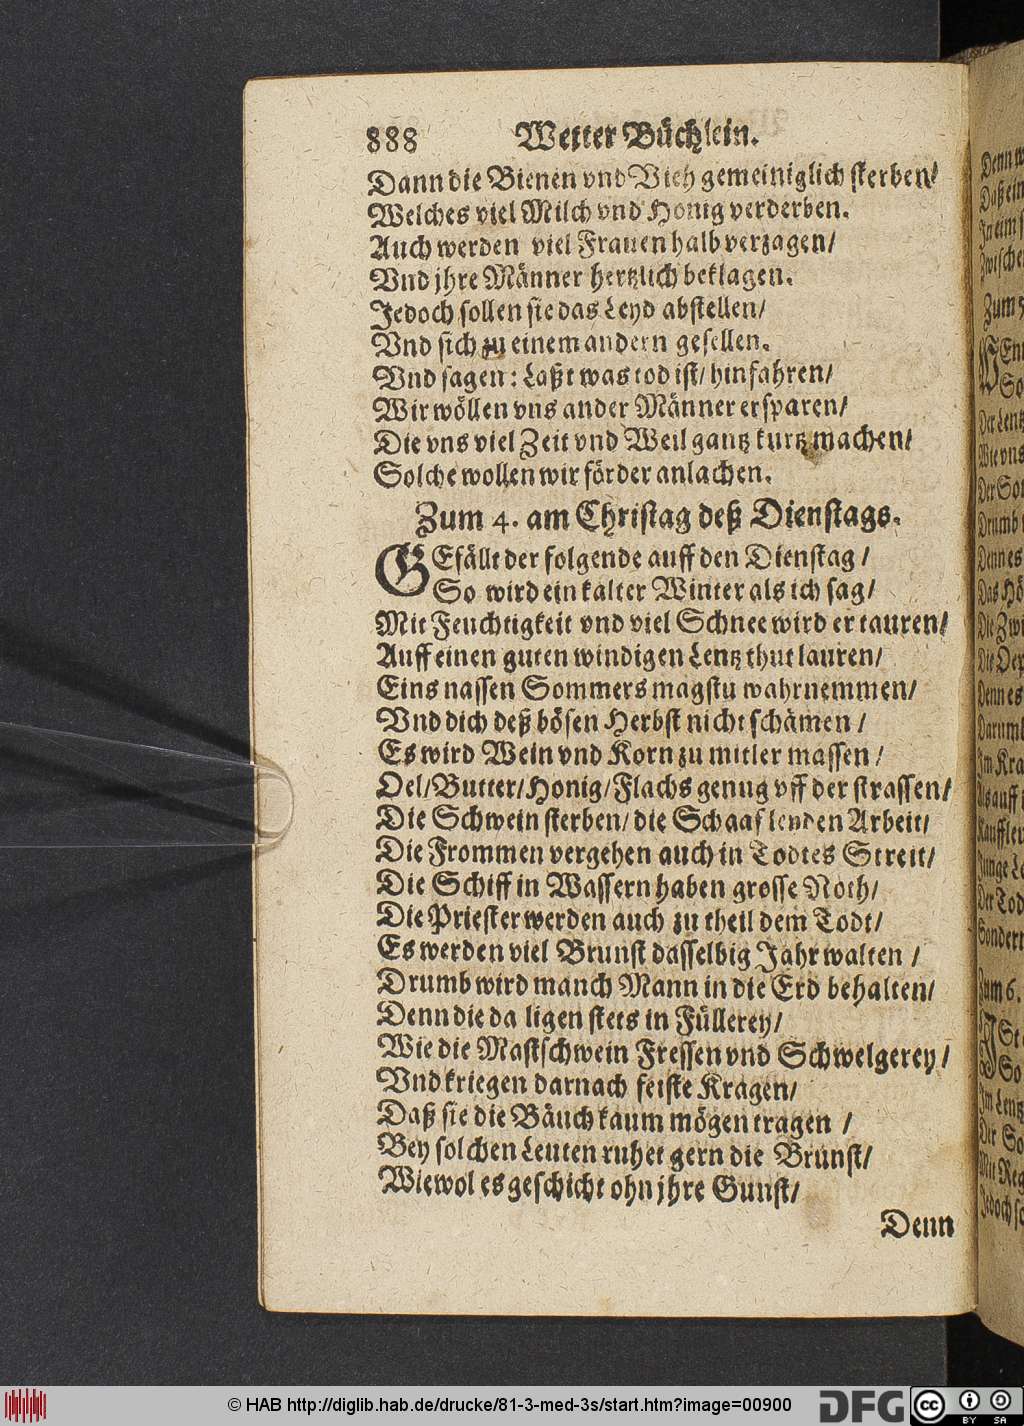 888 Wetter Büchlein.
Dann die Bienen vnd Vieh gemeiniglich sterben/
Welches viel Milch vnd Honig verderben.
Auch werden viel Frauen halb verzagen/
Vnd jhre Männer hertzlich beklagen.
Jedoch sollen sie das Leyd abstellen/
Vnd sich zu einem andern gesellen.
Vnd sagen: Laßt was tod ist/ hinfahren/
Wir wöllen vns ander Männer ersparen/
Die vns viel Zeit vnd Weil gantz kurtz machen/
Solche wollen wir förder anlachen.
Zum 4. am Christag deß Dienstags.
GEfällt der folgende auff den Dienstag/
So wird ein kalter Winter als ich sag/
Mit Feuchtigkeit vnd viel Schnee wird er tauren/
Auff einen guten windigen Lentz thut lauren/
Eins nassen Sommers magstu wahrnemmen/
Vnd dich deß bösen Herbst nicht schämen/
Es wird Wein vnd Korn zu mitler massen/
Oel/Butter/Honig/Flachs genug vff der strassen/
Die Schwein sterben/ die Schaaf lenden Arbeit/
Die Frommen vergehen auch in Todtes Streit/
Die Schiff in Wassern haben grosse Noth/
Die Priester werden auch zu theil dem Todt/
Es werden viel Brunst dasselbig Jahr walten/
Drumb wird manch Mann in die Erd behalten/
Denn die da ligen stets in Füllerey/
Wie die Mastschwein Fressen vnd Schwelgerey/
Vnd kriegen darnach feiste Kragen/
Daß sie die Bäuch kaum mögen tragen/
Bey solchen Leuten ruhet gern die Brunst/
Wiewol es geschicht ohn jhre Gunst/
Denn
© HAB http://diglib.hab.de/drucke/81-3-med-3s/start.htm?image=00900
DFG
cc BY SA